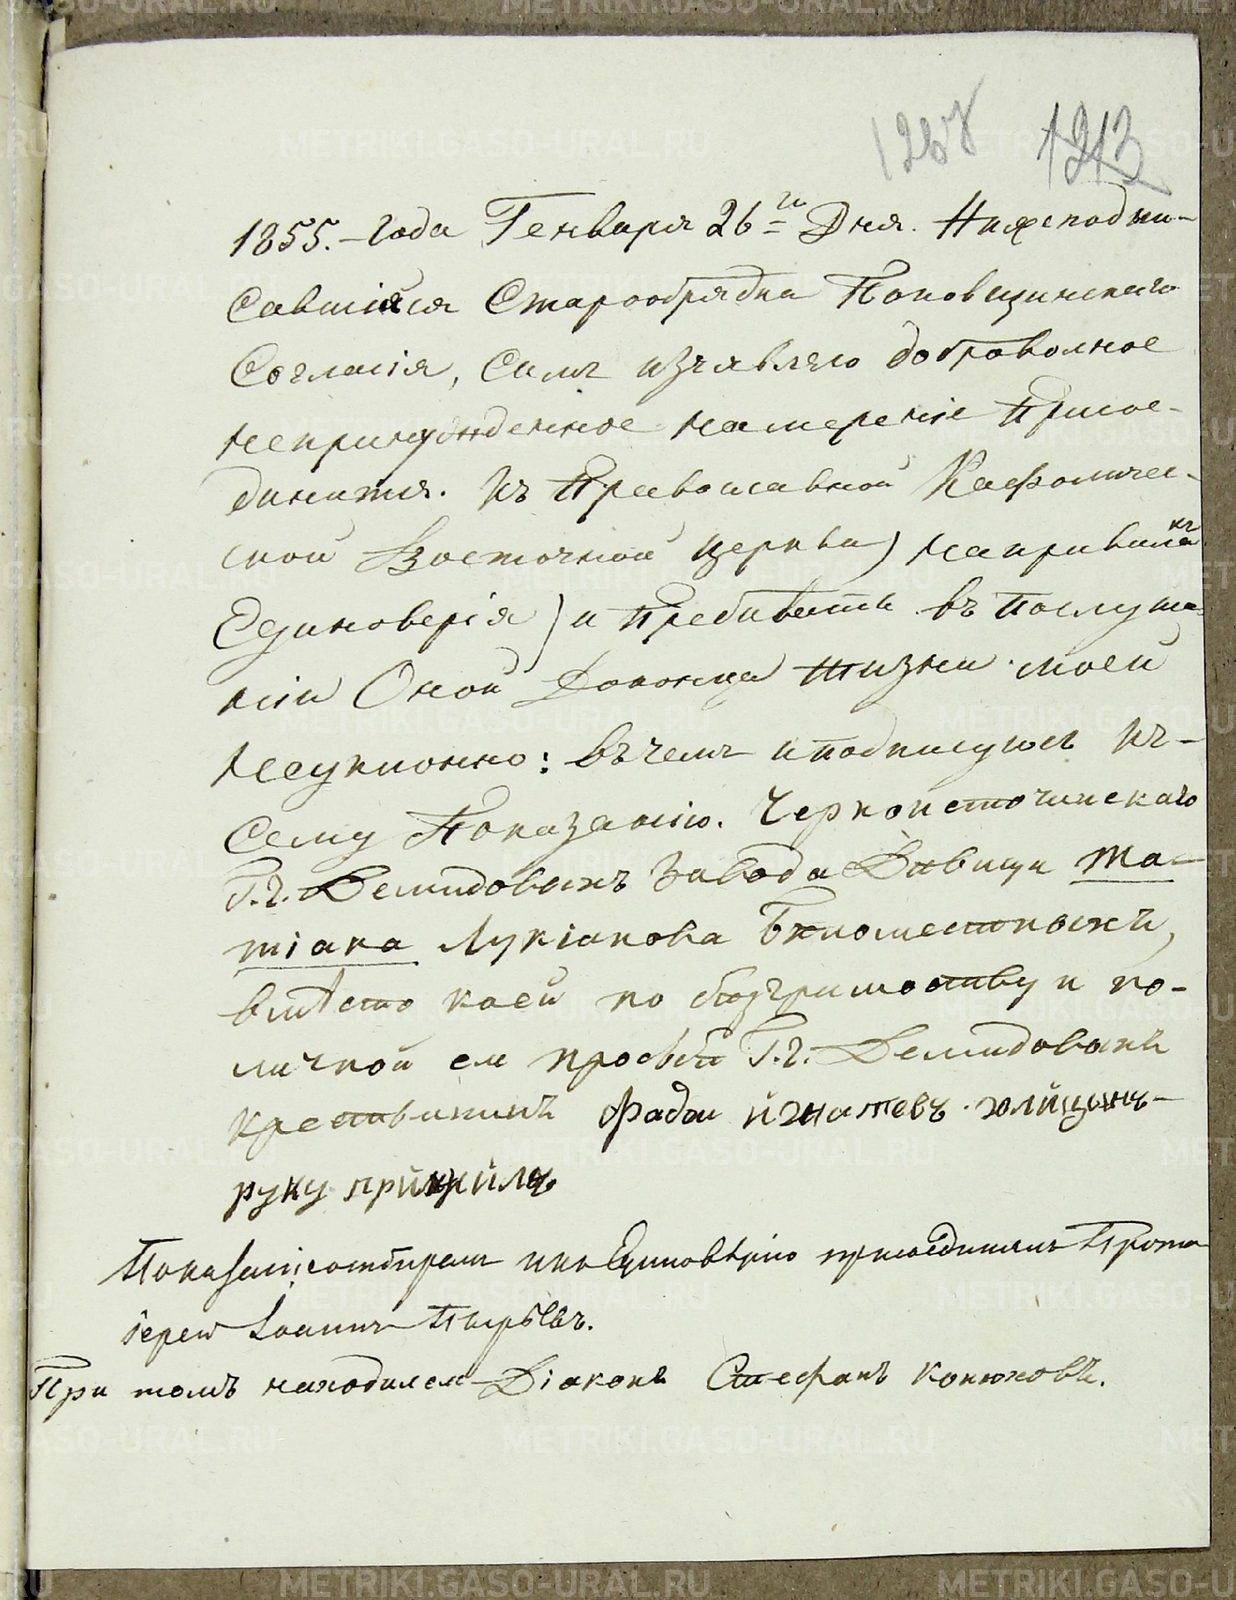 1267 1213
1855. года Генваря 26го Дня. Нижеподпи-
савшаяся Старообрядка Поповщинскаго
Согласія, симъ изъявляю доброволное
непринужденное намереніе Присое-
динится. къ Православной Кафоличес-
кой Восточной церкви) на правилахъ
Единоверія) и пребывать въ послуша-
ніи Оной Доконца жизни моей
неуклонно: въ чемъ и подписуюсь къ-
сему Показанію. Черноисточинскаго
Г.г. Демидовыхъ Завода Девица Та-
тіана Лукіанова Беломестныхъ,
вместо коей по безграмотству и по-
личной ея прозьбе Г.г. Демидовыхъ
крестьянинъ Фадеи йгнатевъ голйцынъ-
руку прйложйлъ
Показаніе отбиралъ и къ Единоверію присоединилъ Прото
іерей Іоаннъ Пырьевъ.
При томъ находился Діаконъ Стефанъ Конюховъ.
METRIKI.GASO-URAL.RU